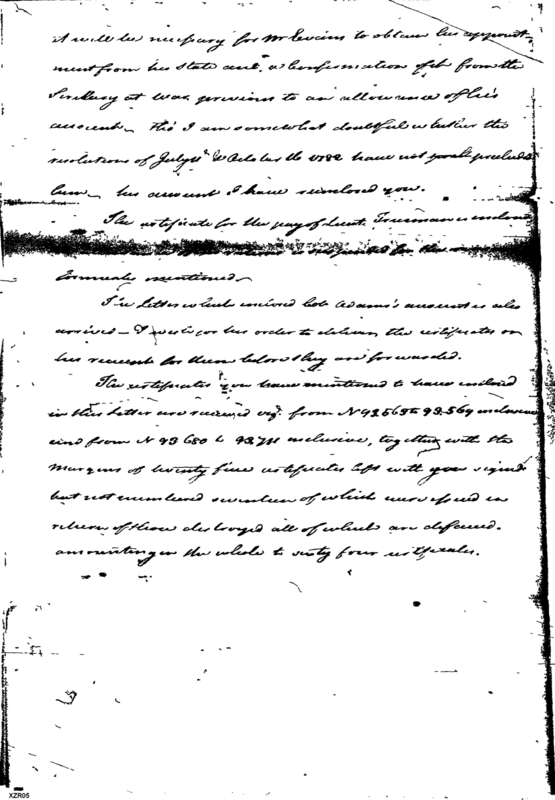 it will be necessary for Mr Evans to obtain his appoint
ment from his State and a Confirmation of it from the
Secretary at War previous to an allowance of his
account. Tho' I am somewhat doubtful whether the
resolutions of July 11th & October 16 1782 have not
him his account I have reinclosed you.
The certificate for the pay of Lieut. Trueman is enclosed
is requested for the
formerly mentioned
The Letter which inclosed Col Adams's account is also
arrived – I wait for his order to deliver the certificates or
his receipt for them before they are forwarded.
The certificates you have mentioned to have inclosed
in this letter are received viz. from N 93565 to 93.569 inclusive
and from N 93680 to 93711 inclusive, together with the
Margins of twenty five certificates left with you signed
but not numbered seventeen of which were issued in
return of those destroyed all of which are defaced.
amounting in the whole to sixty four certificates.
XZR05